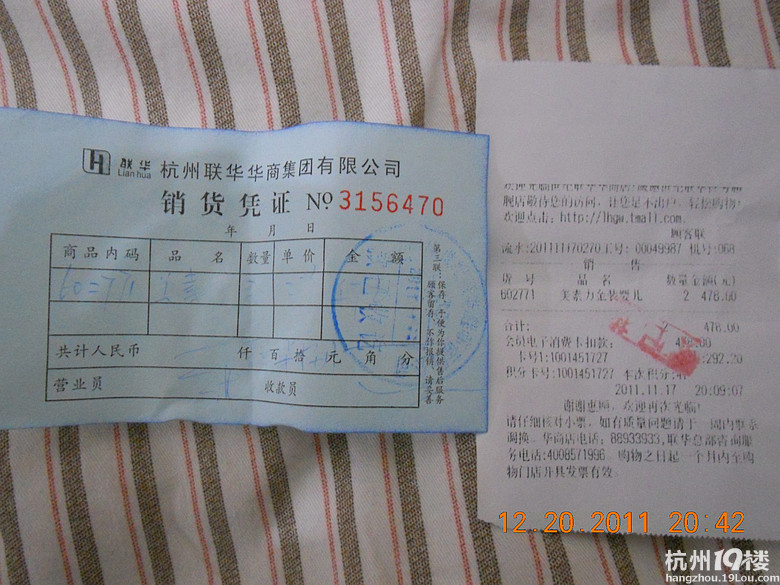 联华
Lian hua
杭州联华华商集团有限公司
销货凭证 No 3156470
年 月 日
商品内码 品名 数量 单价 金额
共计人民币 仟 百 拾 元 角 分
营业员 收款员
第三联：保存
顾客留存
不作报销
请妥善
便为你提供售后服务
舰店敬待您的访问，让您足不出户，轻松购物！
欢迎点击：http://lhgw.tmall.com.
顾客联
工号：00049987 机号：068
销 售
货号 品名 数量 金额(元)
602771 美素力金装婴儿 2 478.00
合计： 478.00
会员电子消费卡扣款：
卡号：1001451727 292.20
积分卡号：1001451727 本次积分：
2011.11.17 20:09:07
谢谢惠顾，欢迎再次光临！
请仔细核对小票，如有质量问题请于一周内联系
调换。华商店电话：88933933,联华总部咨询服
务电话：4008571996. 购物之日起一个月内至购
物门店开具发票有效。
12.20.2011 20:42
杭州19楼
hangzhou.19Lou.com